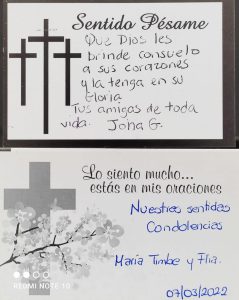 Sentido Pésame
Que Dios les
brinde consuelo
a sus corazones
y la tenga en su
Gloria
Tus amigas de toda
vida. Joha G.
Lo siento mucho...
estás en mis oraciones
Nuestras sentidas
Condolencias
Maria Timbe y Flia.
07/03/2022
REDMI NOTE 10